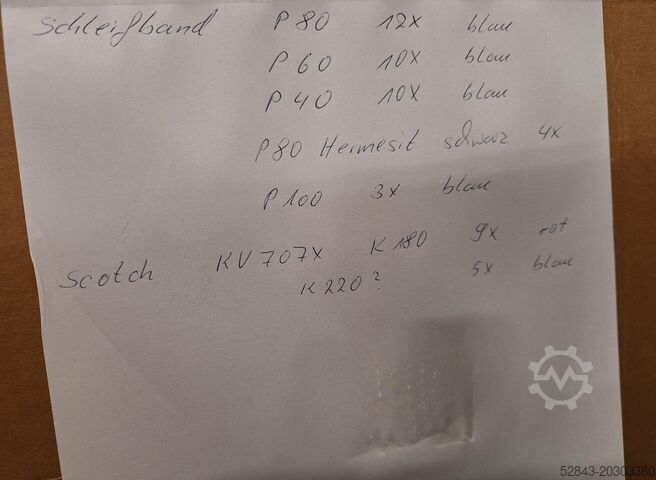 Schleifband P 80 12x blau
P 60 10x blau
P 40 10x blau
P80 Hermesit schwarz 4x
P 100 3x blau
Scotch KV 707X K 180 9x rot
K 220? 5x blau
52843-20303380